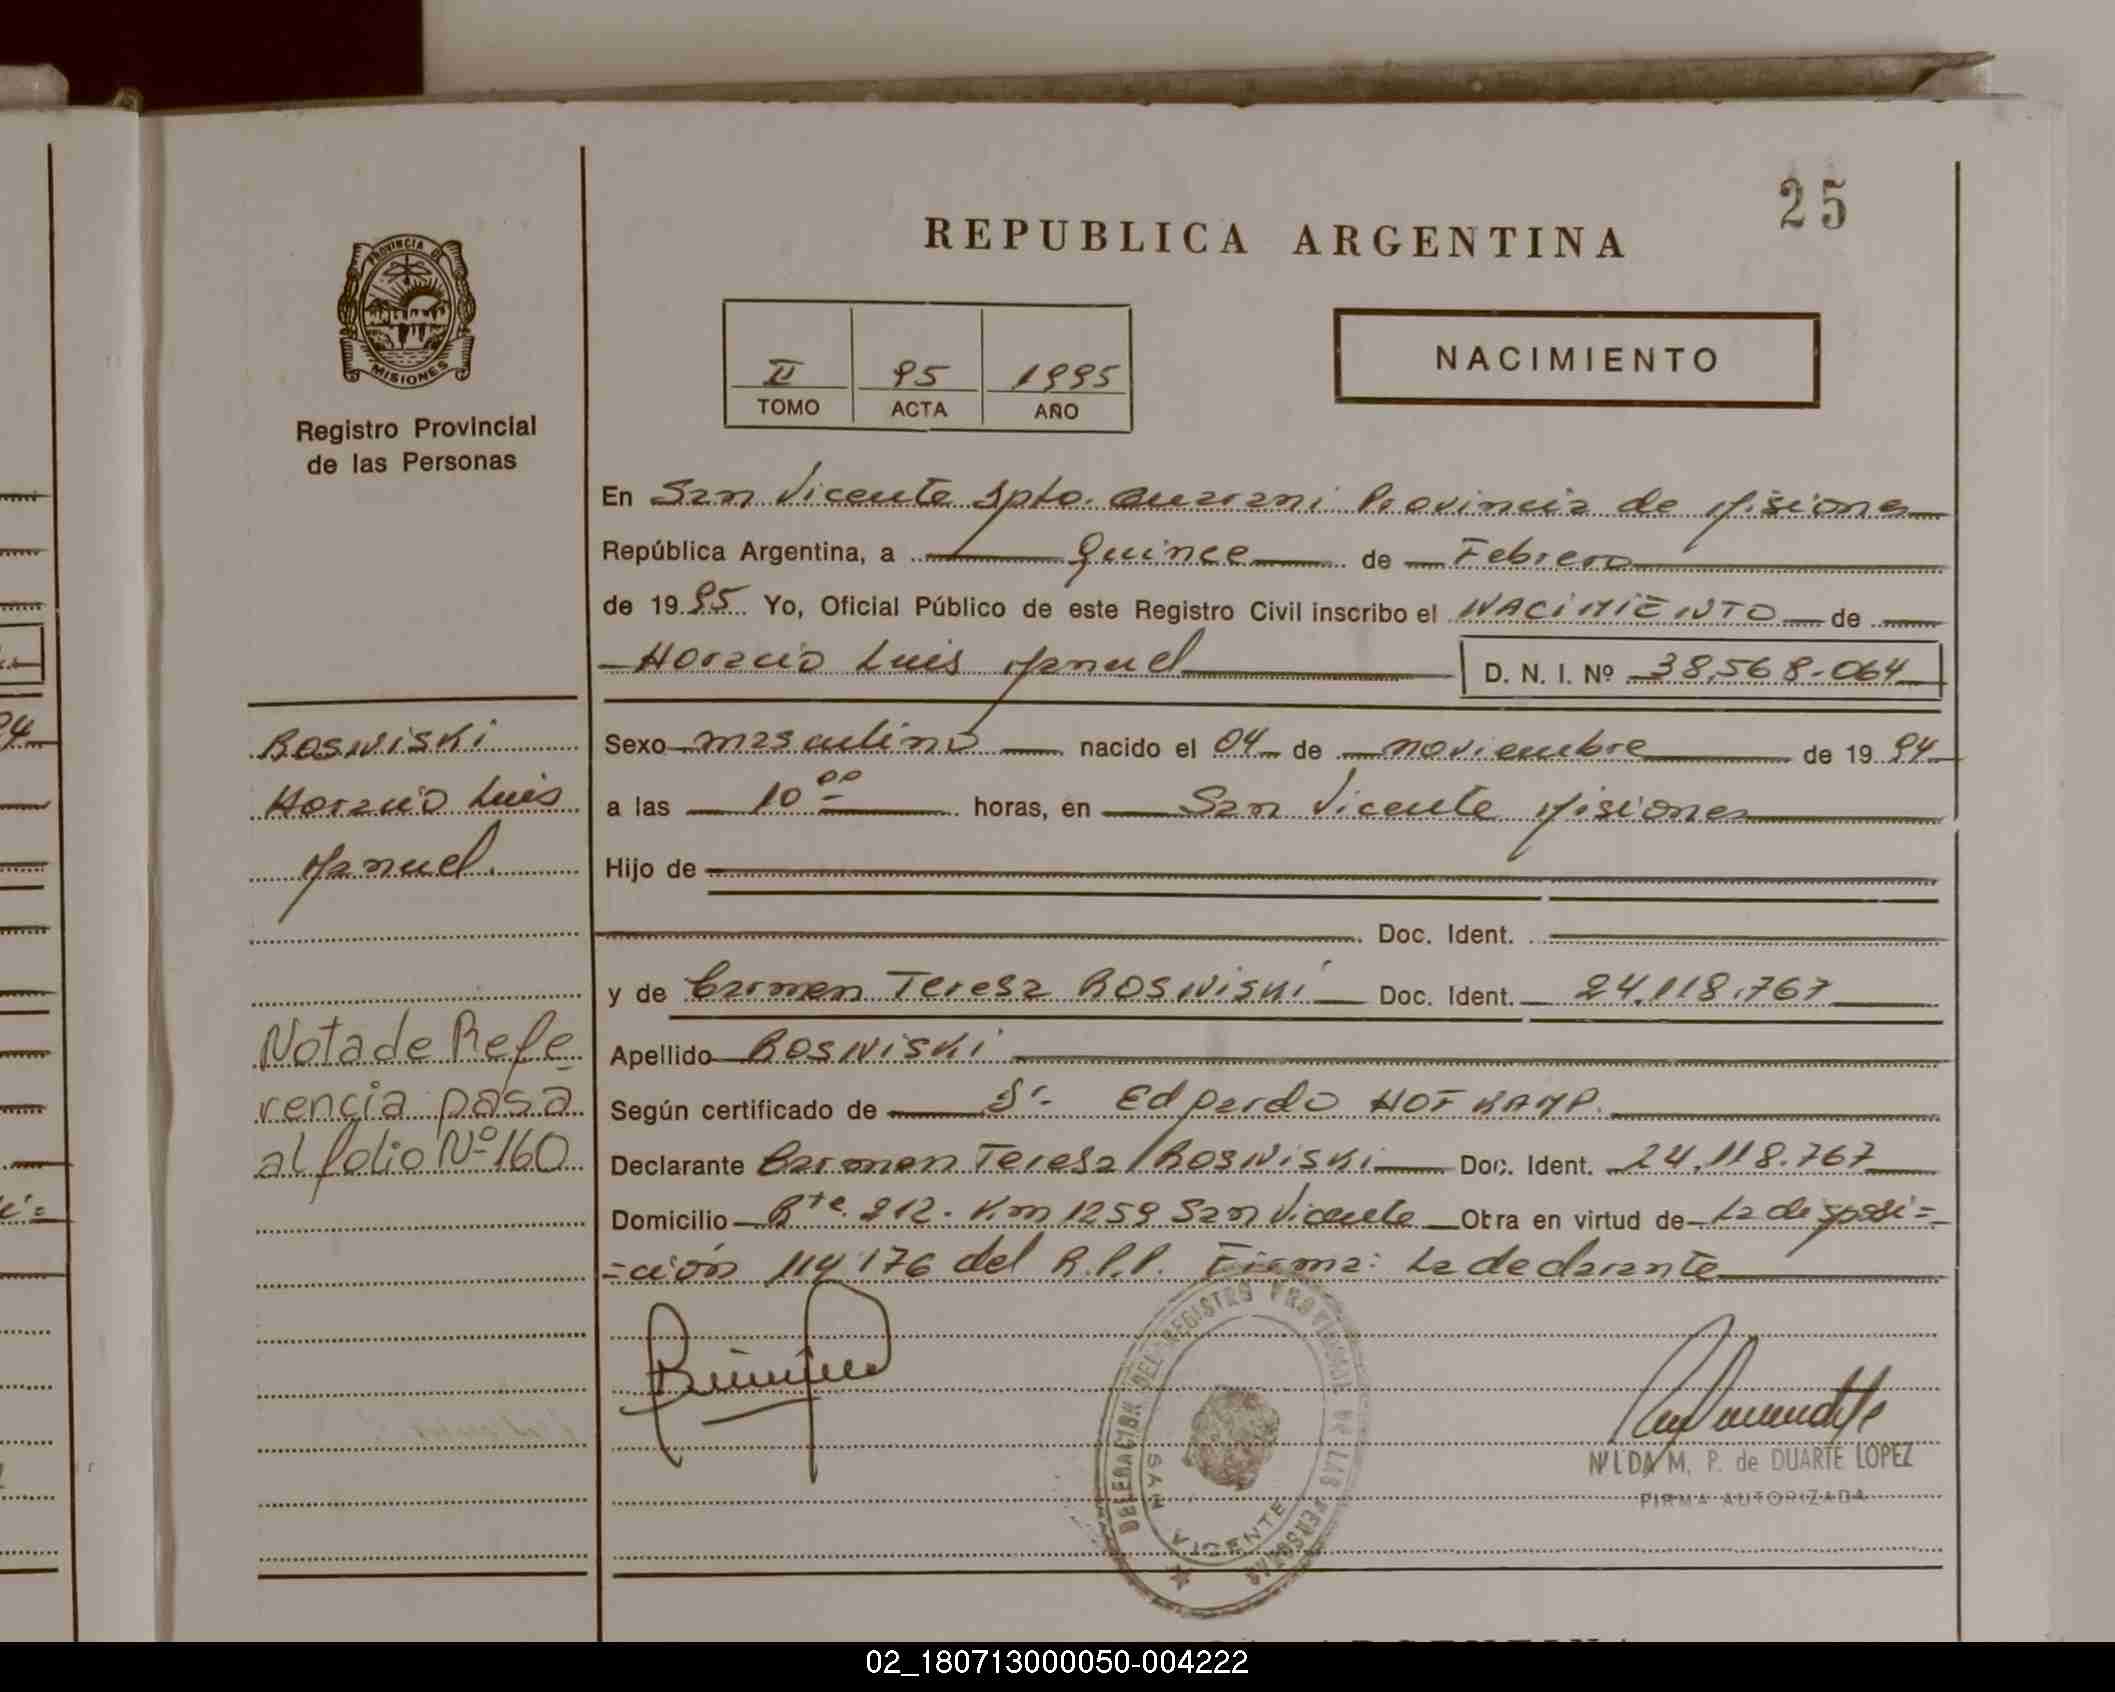 25
REPUBLICA ARGENTINA
PROVINCIA DE
MISIONES
Registro Provincial
de las Personas
II 95 1995
TOMO ACTA AÑO
NACIMIENTO
En San Vicente Dpto. Guarani Provincia de Misiones
República Argentina, a Quince de Febrero
de 1995 Yo, Oficial Público de este Registro Civil inscribo el NACIMIENTO de
Horacio Luis Manuel D. N. I. Nº 38.568.064
Sexo masculino nacido el 04 de noviembre de 1994
a las 10 00 horas, en San Vicente Misiones
Hijo de
Doc. Ident.
y de Carmen Teresa ROSNiSKi Doc. Ident. 24.118.767
Apellido ROSNiSKi
Según certificado de Sr. Eduardo HOFKAMP.
Declarante Carmen Teresa ROSNiSKi Doc. Ident. 24.118.767
Domicilio Rte. 212. Km 1259 San Vicente Obra en virtud de La disposi=
=ción 114/176 del R.P.P. Firma: La declarante
ROSNiSKi
Horacio Luis
Manuel.
Nota de Refe
rencia pasa
al folio Nº 160
DELEGACION DEL REGISTRO PROVINCIAL DE LAS PERSONAS
SAN VICENTE
NILDA M. P. de DUARTE LOPEZ
FIRMA AUTORIZADA
02_180713000050-004222